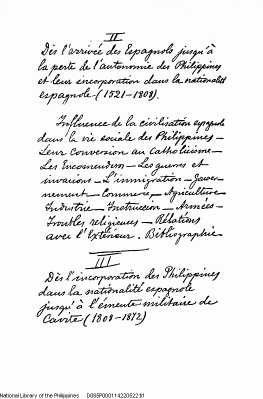 II
Dès l'arrivée des Espagnols jusqu'à
la perte de l'autonomie des Philippines
et leur incorporation dans la nationalité
espagnole (1521-1808).
Influence de la civilisation espagnole
dans la vie sociale des Philippines —
Leur conversion au Catholicisme —
Les Encomenderos — Les guerres et
invasions — L'immigration — Gouver-
nement — Commerce — Agriculture —
Industrie — Instruccion — Armées —
Troubles religieuses — Rélations
avec l'Extérieur. Bibliographie
III
Dès l'incorporation des Philippines
dans la nationalité espagnole
jusqu'à l'émeute militaire de
Cavite (1808-1872)
National Library of the Philippines D085P00011422052281